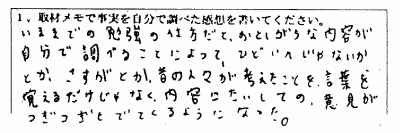 1、取材メモで事実を自分で調べた感想を書いてください。
いままでの勉強のしかただと、おとしがちな内容が
自分で調べることによって、ひどいんじゃないか
とか、さすがとか、昔の人々が考えたことを、言葉を
覚えるだけじゃなく、内容にたいしての、意見が
つぎつぎとでてくるようになった。